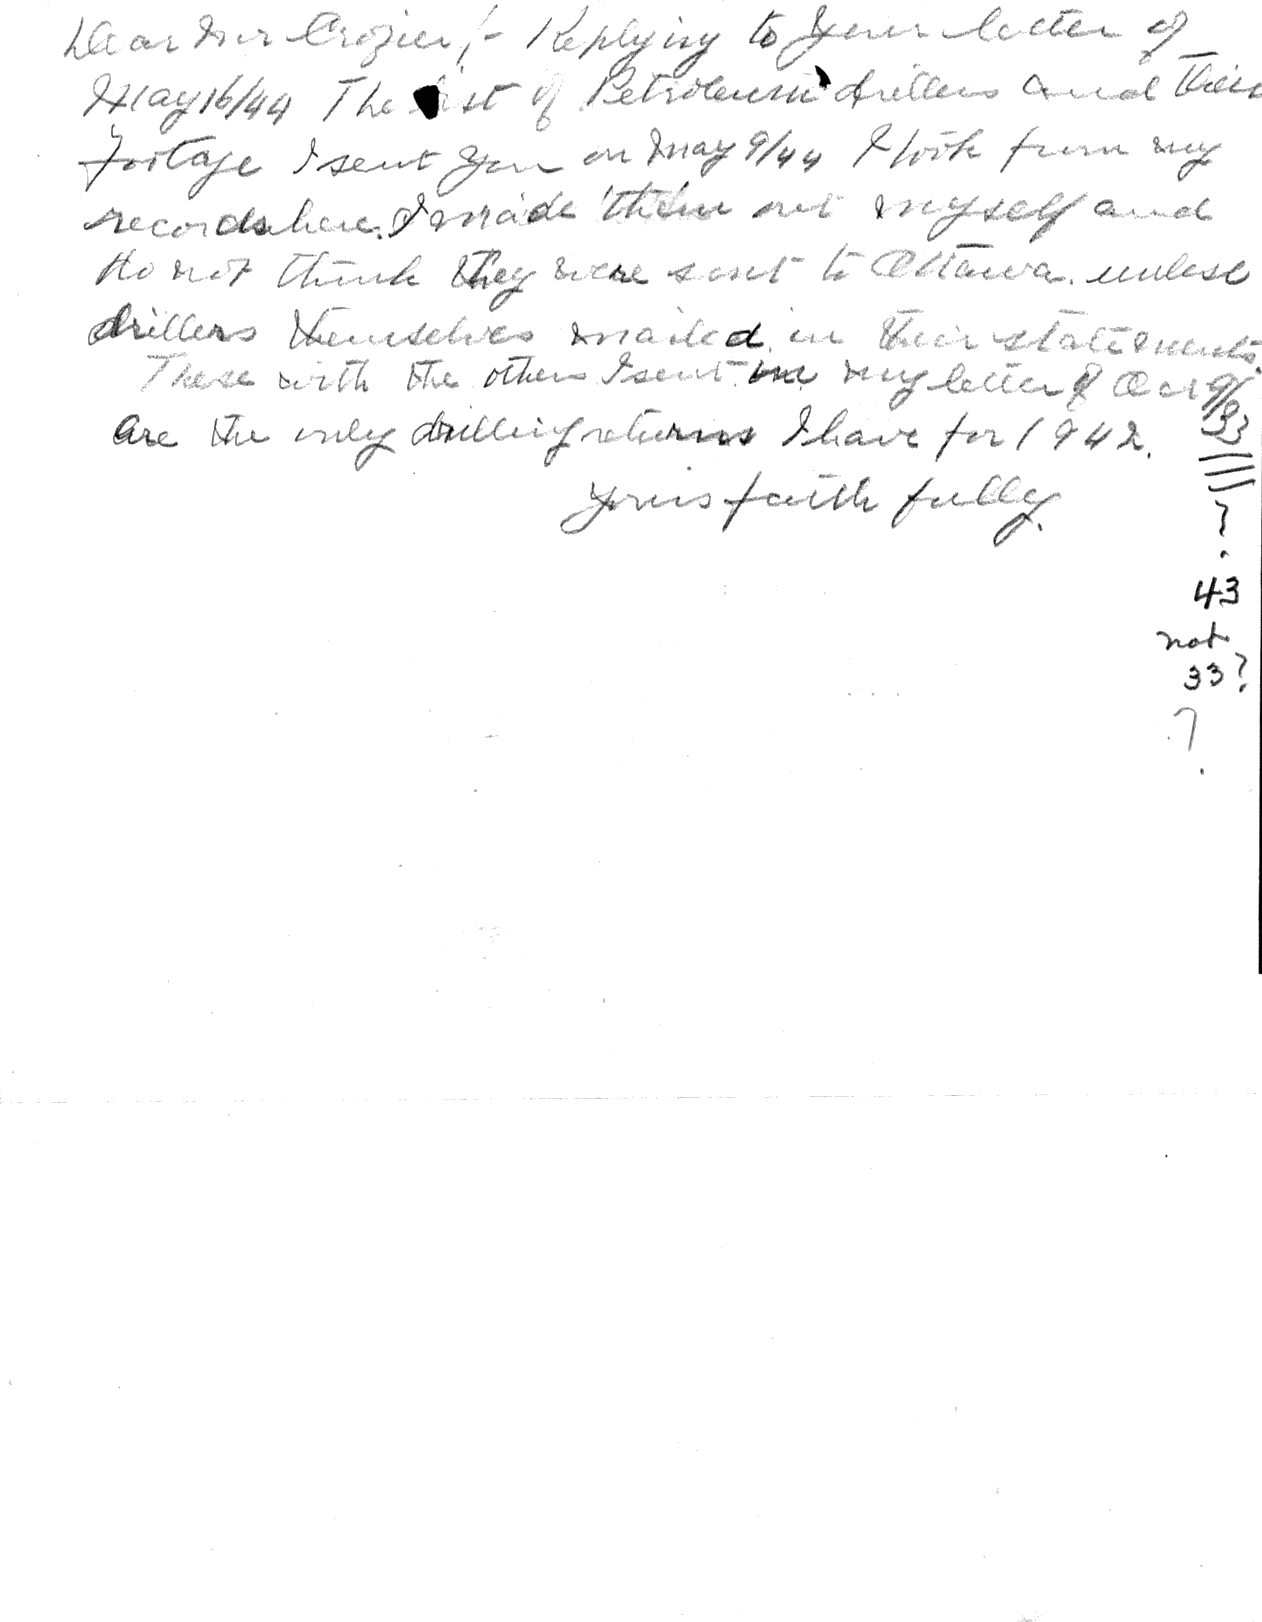 Dear Mr Crozier,:- Replying to your letter of
May 16/44 The list of Petroleum drillers and their
footage I sent you on May 9/44 I took from my
records here. I made them out myself and
do not think they were sent to Ottawa. unless
drillers themselves mailed in their statements.
These with the others I sent in my letter of Oct 9/33
are the only drilling returns I have for 1942.
Yours faithfully.
?
43
not
33?
?